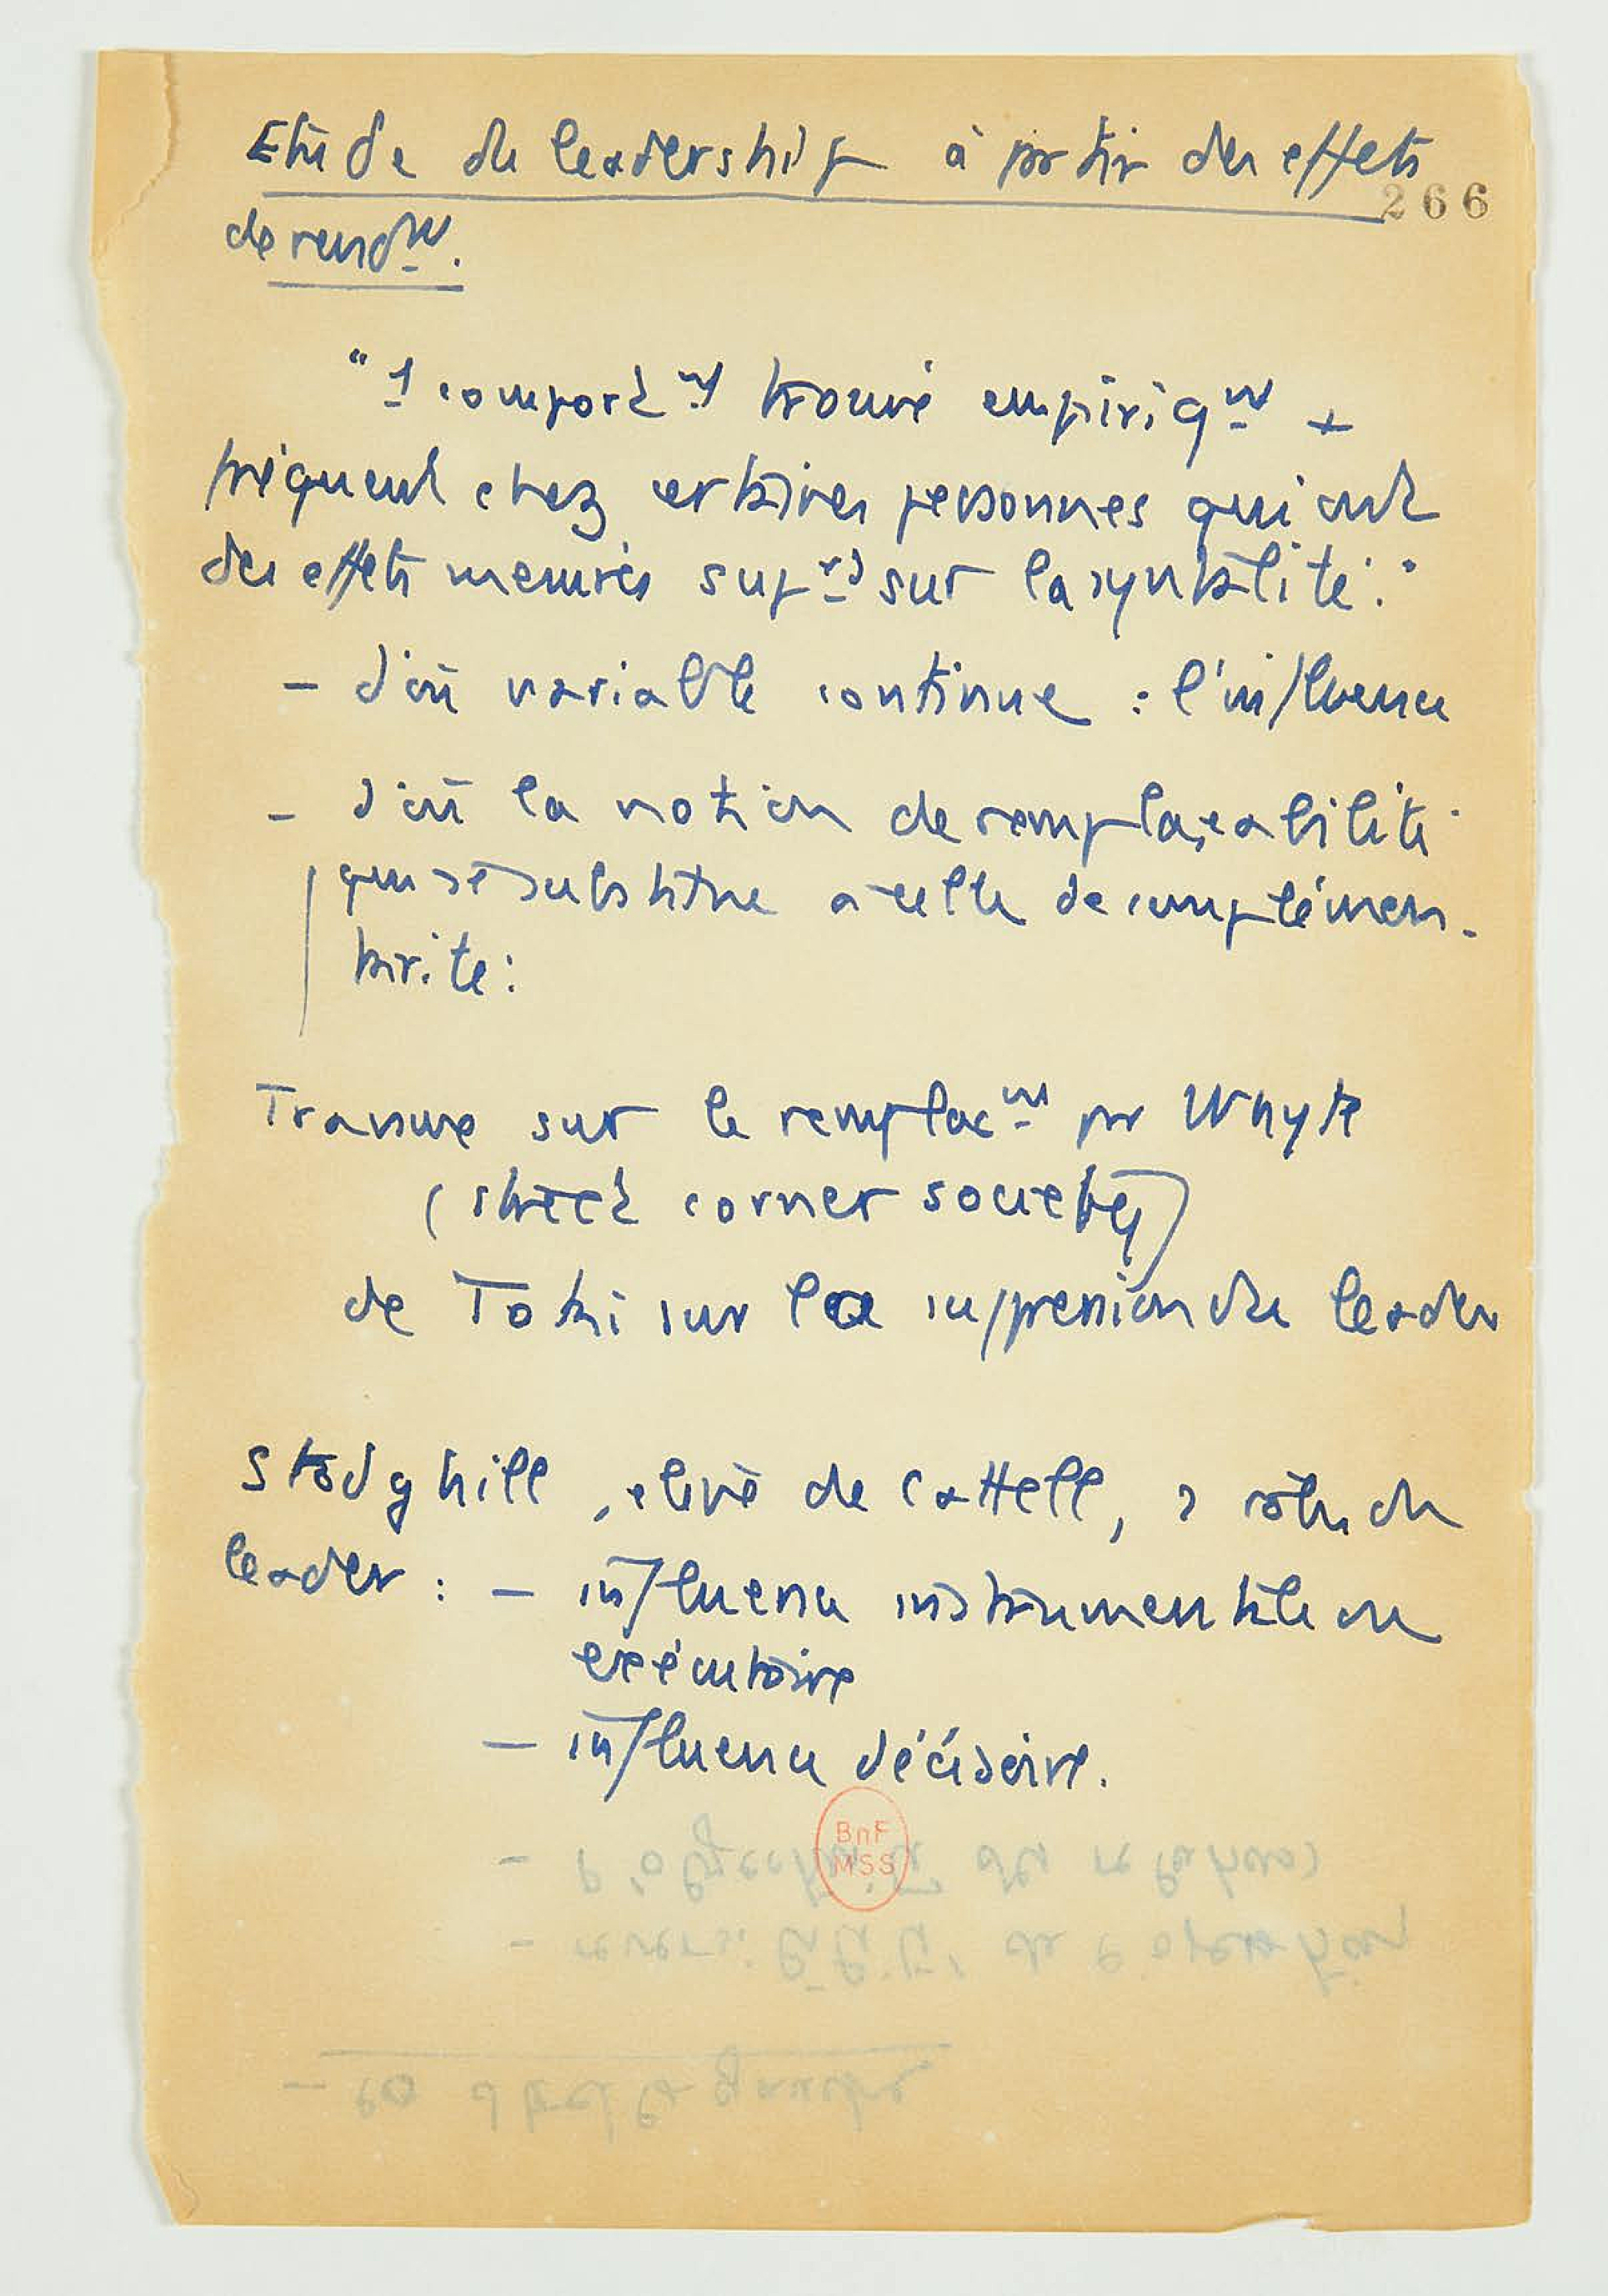 Etude du leadership à partir des effets
266
de rendmt.
"1 comportmt trouvé empiriqmt +
fréquent chez certaines personnes qui ont
des effets mesurés suprs sur la syntalité."
- d'où variable continue : l'influence
- d'où la notion de remplaçabilité
qui se substitue a celle de complémen-
tarité :
Travaux sur le remplacmt par Whyte
(street corner society)
de Toki sur la suppression du leader
Stodghill, elève de Cattell, 2 rôles du
leader : - influence instrumentale ou
exécutoire
- influence décisoire.
BnF
MSS
- l'objectivité des relations
- reversibilité de l'operation
- la droite la gauche